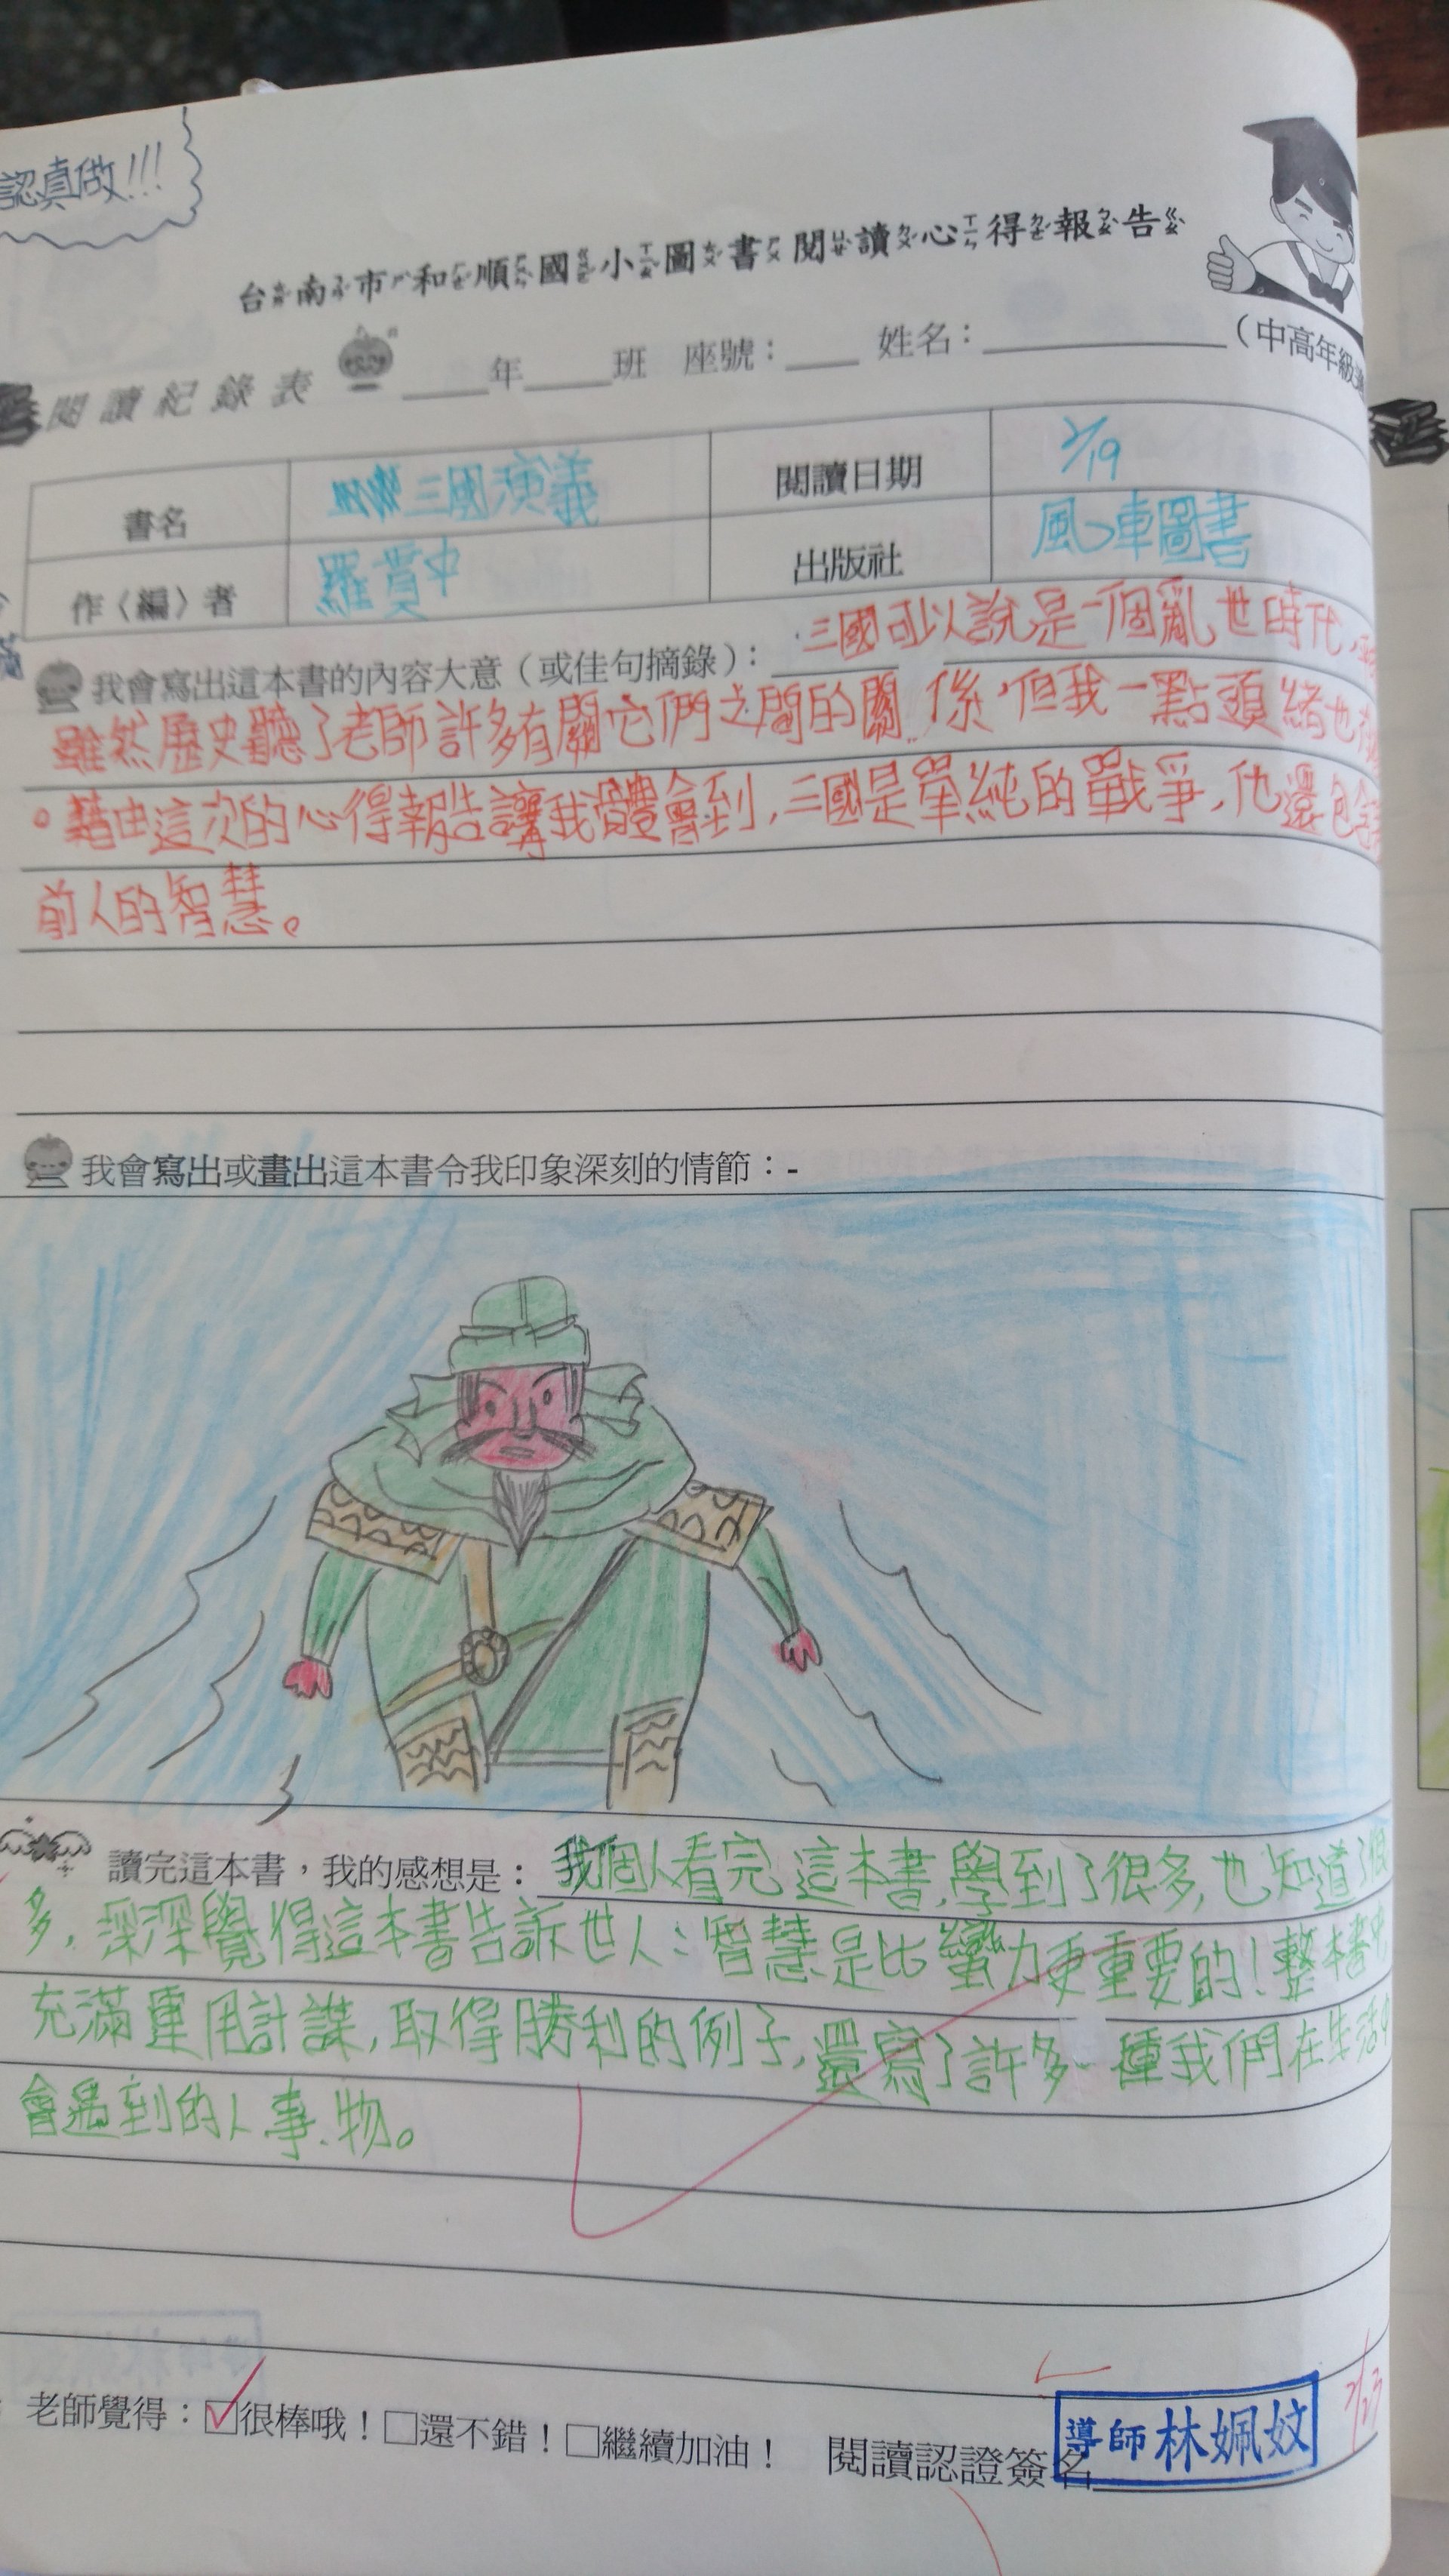 認真做!!!
台南市和順國小圖書閱讀心得報告
閱讀紀錄表 ____年____班 座號：____ 姓名：________ (中高年級
書名 三國演義 閱讀日期 2/19
作〈編〉者 羅貫中 出版社 風車圖書
我會寫出這本書的內容大意（或佳句摘錄）： 三國可以說是一個亂世時代,
雖然歷史聽了老師許多有關它們之間的關係,但我一點頭緒也
。藉由這次的心得報告讓我體會到,三國是單純的戰爭,他還包含
前人的智慧。
我會寫出或畫出這本書令我印象深刻的情節：-
讀完這本書，我的感想是： 我個人看完這本書,學到了很多,也知道了很
多,深深覺得這本書告訴世人:智慧是比蠻力更重要的!整本書
充滿運用計謀,取得勝利的例子,還寫了許多種我們在生活中
會遇到的人、事、物。
老師覺得：☑很棒哦！□還不錯！□繼續加油！ 閱讀認證簽名 導師 林姵妏 2/23